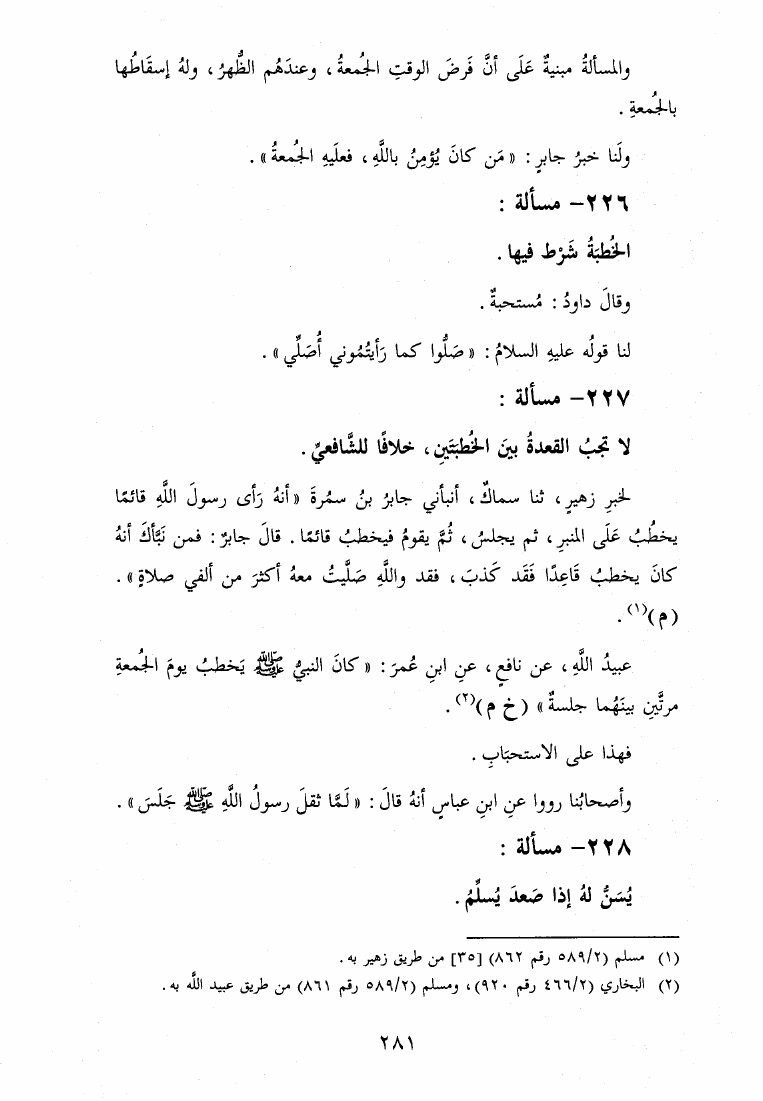 والمسألةُ مبنيةٌ عَلَى أنَّ فَرضَ الوقتِ الجُمعةُ، وعندَهُم الظُّهرُ، ولهُ إسقَاطُها
بالجُمعةِ.
ولَنا خبرُ جابرٍ: «مَن كانَ يُؤمِنُ باللَّهِ، فعلَيهِ الجُمعةُ».
٢٢٦- مسألة :
الخُطبَةُ شَرْط فيها.
وقالَ داودُ: مُستحبةٌ.
لنا قولُه عليهِ السلامُ: «صَلُّوا كما رَأيتُمُوني أُصَلِّي».
٢٢٧- مسألة :
لا تجبُ القعدةُ بينَ الخُطبَتَينِ، خلافًا للشَّافعيِّ.
لخبرِ زهيرٍ، ثنا سماكٌ، أنبأني جابرُ بنُ سمُرةَ «أنهُ رَأى رسولَ اللَّهِ قائمًا
يخطُبُ عَلَى المنبرِ، ثم يجلسُ، ثُمَّ يقومُ فيخطبُ قائمًا. قالَ جابرٌ: فمن نَبَّأكَ أنهُ
كانَ يخطبُ قَاعِدًا فَقَد كَذبَ، فقد واللَّهِ صَلَّيتُ معهُ أكثرَ من ألفي صلاةٍ».
(م)(١).
عبيدُ اللَّهِ، عن نافعٍ، عنِ ابنِ عُمرَ: «كانَ النبيُّ ﷺ يَخطبُ يومَ الجُمعةِ
مرتَّينِ بينَهُما جلسةٌ» (خ م)(٢).
فهذا على الاستحبَابِ.
وأصحابُنا رووا عنِ ابنِ عباسٍ أنهُ قالَ: «لَمَّا ثقلَ رسولُ اللَّهِ ﷺ جَلَسَ».
٢٢٨- مسألة :
يُسَنُّ لهُ إذا صَعدَ يُسلِّمُ.
(١) مسلم (٥٨٩/٢ رقم ٨٦٢) [٣٥] من طريق زهير به.
(٢) البخاري (٤٦٦/٢ رقم ٩٢٠)، ومسلم (٥٨٩/٢ رقم ٨٦١) من طريق عبيد اللَّه به.
٢٨١